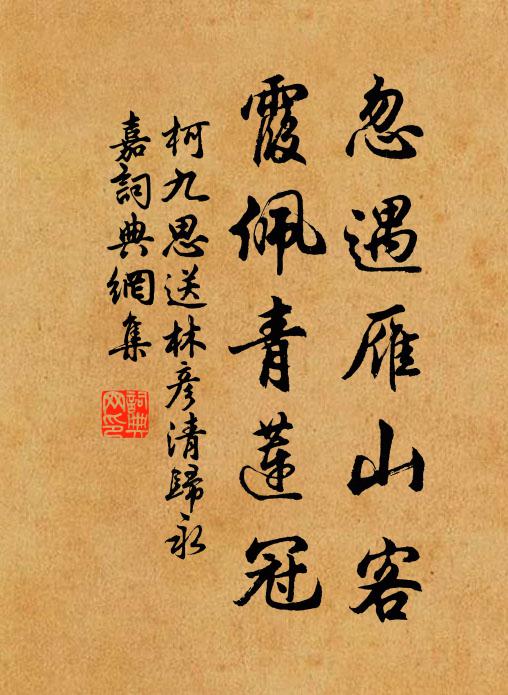 忽遇雁山客
霞佩青蓮冠
柯九思送林彥清歸永
嘉詞典網集
詞典
网印